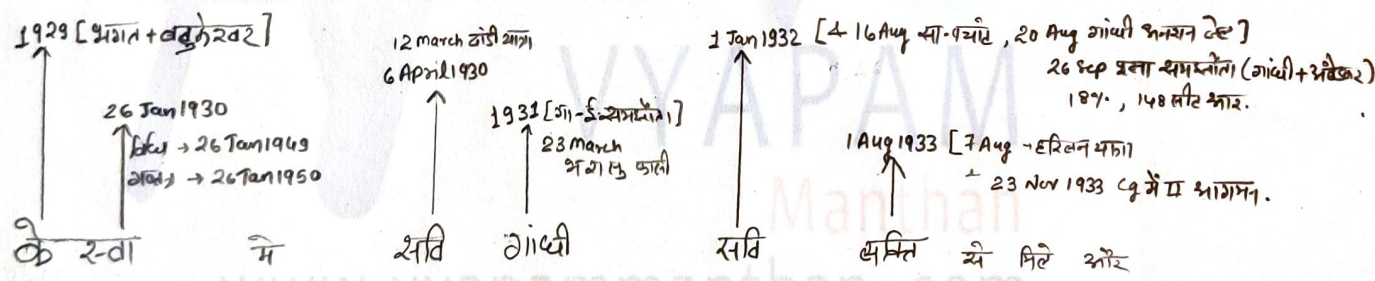 1929 [भगत + बटुकेश्वर]
26 Jan 1930
→ 26 Jan 1949
गणतंत्र → 26 Jan 1950
12 march दांडी यात्रा
6 April 1930
1931 [गा-ई-समझौता]
23 March
भ रा सु फासी
1 Jan 1932 [4 16 Aug सा-पंचाट, 20 Aug गांधी अनशन]
26 Sep पूना समझौता (गांधी + अंबेडकर)
18%, 148 सीट आर.
1 Aug 1933 [7 Aug - हरिजन यात्रा
23 Nov 1933 Cg में II आगमन.
के स्वा में सवि गांधी सवि व्यक्ति से मिले और
VYAPAM
Manthan